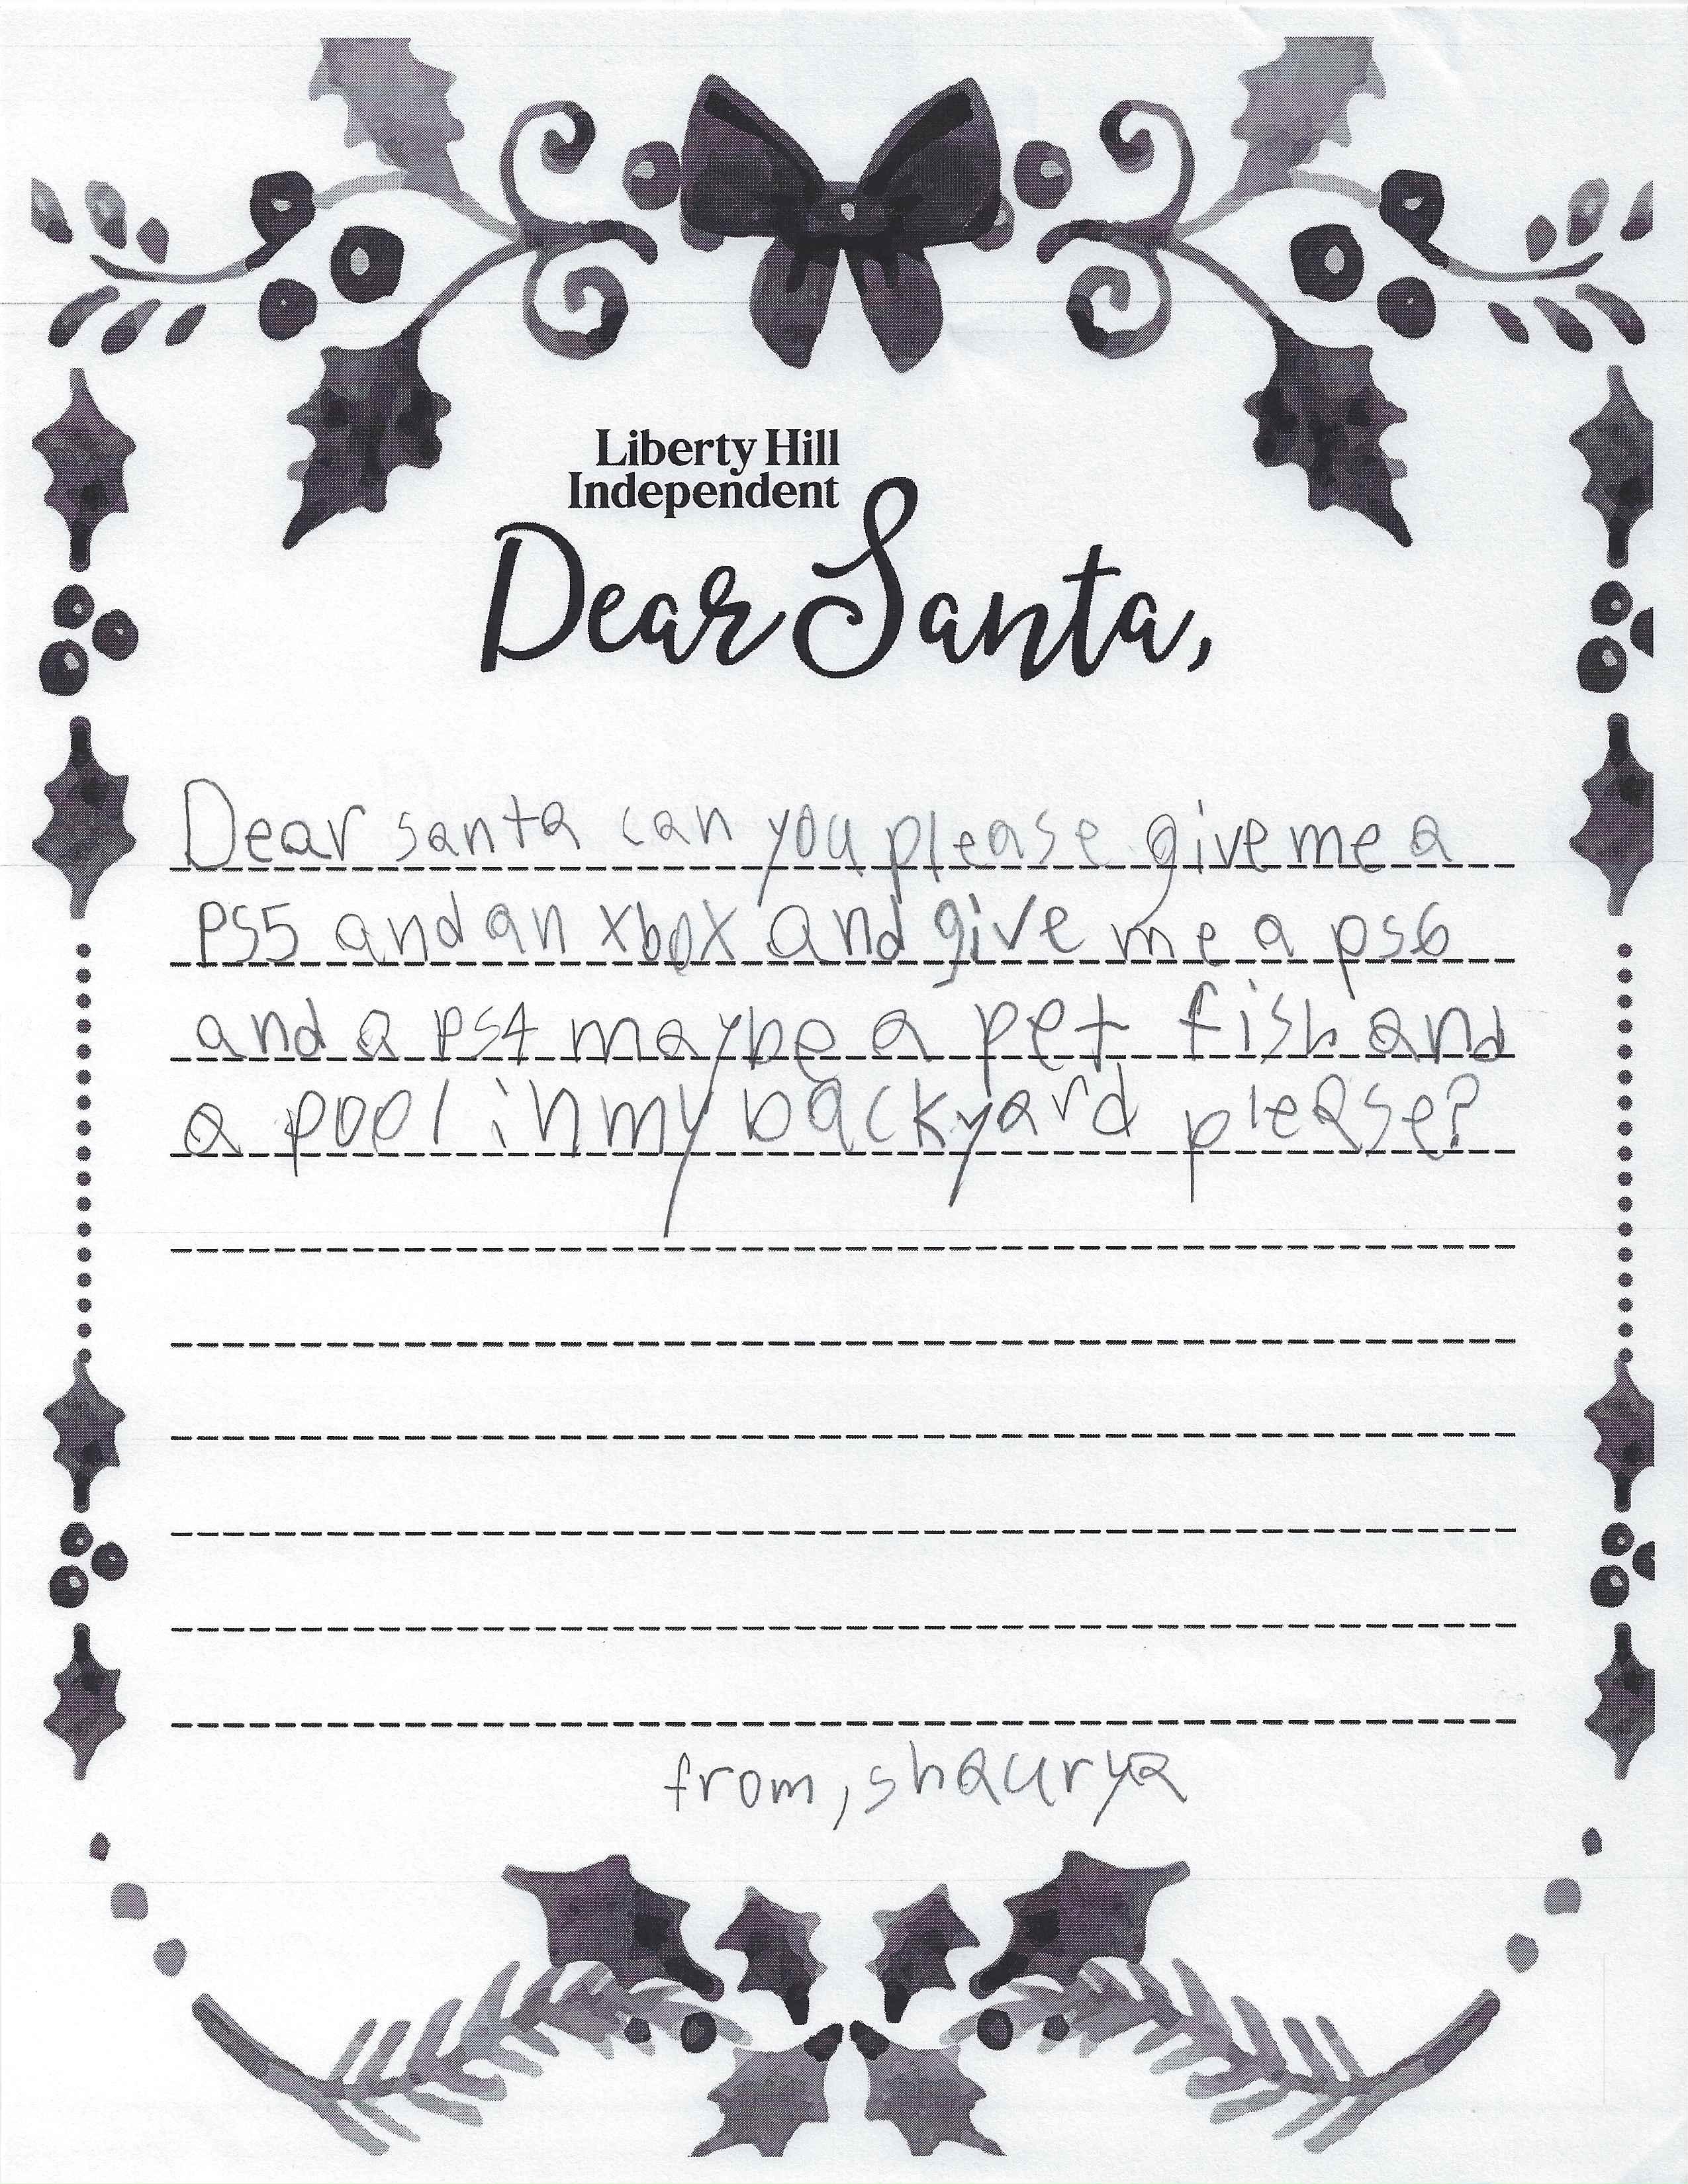 Liberty Hill
Independent
Dear Santa,
Dear santa can you please give me a
PS5 and an xbox and give me a ps6
and a PS4 maybe a pet fish and
a pool in my backyard please?
from, shaurya